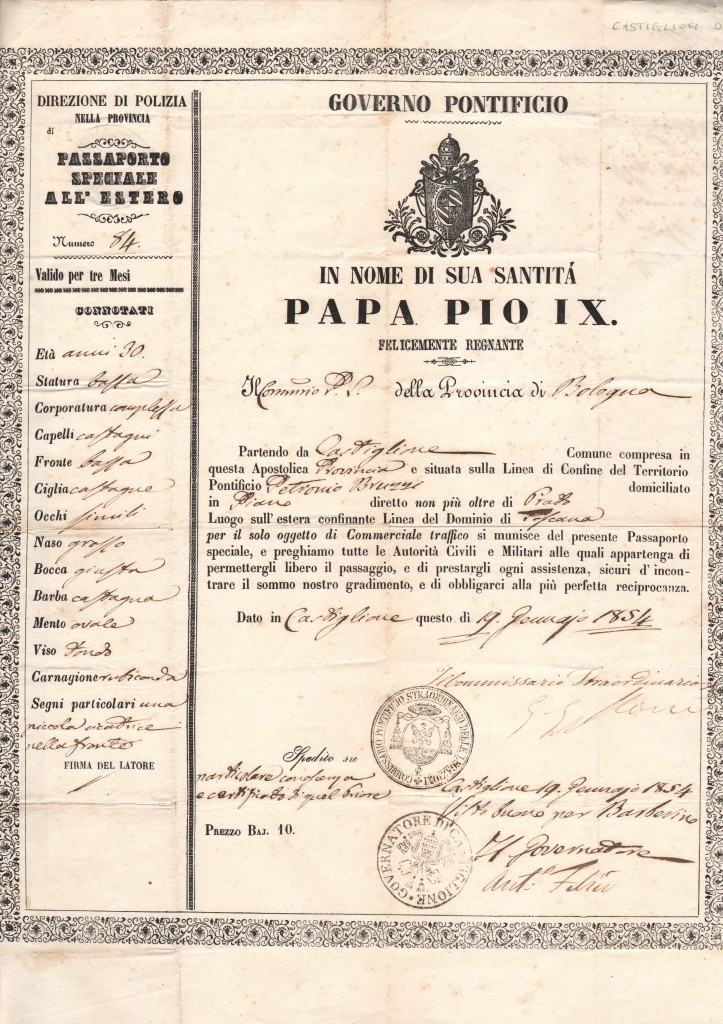 CASTIGLION D
DIREZIONE DI POLIZIA
NELLA PROVINCIA
di
PASSAPORTO
SPECIALE
ALL' ESTERO
Numero 84.
Valido per tre Mesi
CONNOTATI
Età anni 30.
Statura bassa
Corporatura complessa
Capelli castagni
Fronte bassa
Ciglia castagne
Occhi simili
Naso grosso
Bocca giusta
Barba castagna
Mento ovale
Viso tondo
Carnagione rubiconda
Segni particolari una
piccola cicatrice
nella fronte
FIRMA DEL LATORE
GOVERNO PONTIFICIO
IN NOME DI SUA SANTITÁ
PAPA PIO IX.
FELICEMENTE REGNANTE
della Provincia di Bologna
Partendo da Castiglione Comune compresa in
questa Apostolica Provincia e situata sulla Linea di Confine del Territorio
Pontificio Petronio Bruzzi domiciliato
in Piano diretto non più oltre di Prato
Luogo sull' estera confinante Linea del Dominio di Toscana
per il solo oggetto di Commerciale traffico si munisce del presente Passaporto
speciale, e preghiamo tutte le Autorità Civili e Militari alle quali appartenga di
permettergli libero il passaggio, e di prestargli ogni assistenza, sicuri d' incon-
trare il sommo nostro gradimento, e di obbligarci alla più perfetta reciprocanza.
Dato in Castiglione questo dì 19. Gennajo 1854
Il Commissario Straordinario
COMMISSARIO PONTIFICIO STRAORDINARIO DELLE 4 LEGAZIONI
Spedito su
particolare conoscenza
e certificato di quel Priore
Castiglione 19. Gennajo 1854
Visto buono per Barberino
PREZZO BAJ. 10.
GOVERNATORE DI CASTIGLIONE
Il Governatore